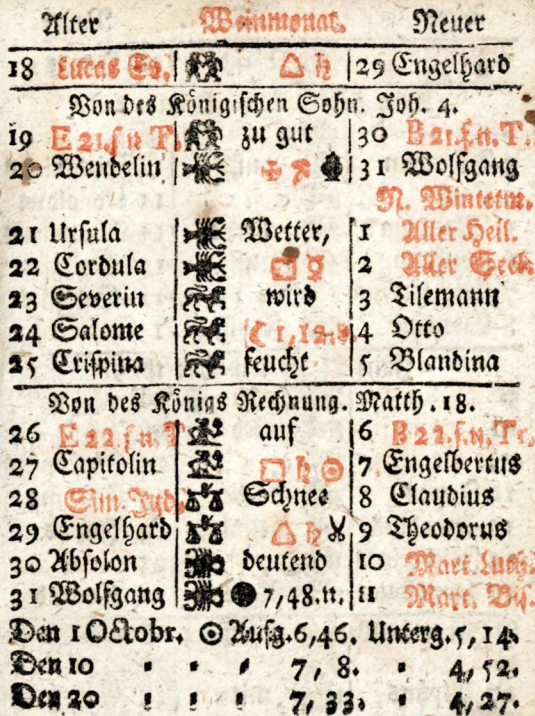 Alter Weinmonat. Neuer
18 Lucas Ev. △ ♄ 29 Engelhard
Von des Königischen Sohn. Joh. 4.
19 E 21. f. n T. zu gut 30 B 21. f. n. T.
20 Wendelin 31 Wolfgang
N. Winterm.
21 Ursula Wetter, 1 Aller Heil.
22 Cordula □ ☿ 2 Aller Seel.
23 Severin wird 3 Tilemann
24 Salome 4 Otto
25 Crispina feucht 5 Blandina
Von des Königs Rechnung. Matth. 18.
26 E 22. f. n. T auf 6 B 22. f. n. Tr.
27 Capitolin □ ♄ ☉ 7 Engelbertus
28 Sim. Jud. Schnee 8 Claudius
29 Engelhard △ ♄ 9 Theodorus
30 Absolon deutend 10 Mart. Luth.
31 Wolfgang ● 7, 48. n. 11 Mart. Bis.
Den 1 Octobr. ☉ Aufg. 6, 46. Unterg. 5, 14.
Den 10 " " " 7, 8. " 4, 52.
Den 20 " " " 7, 33. " 4, 27.